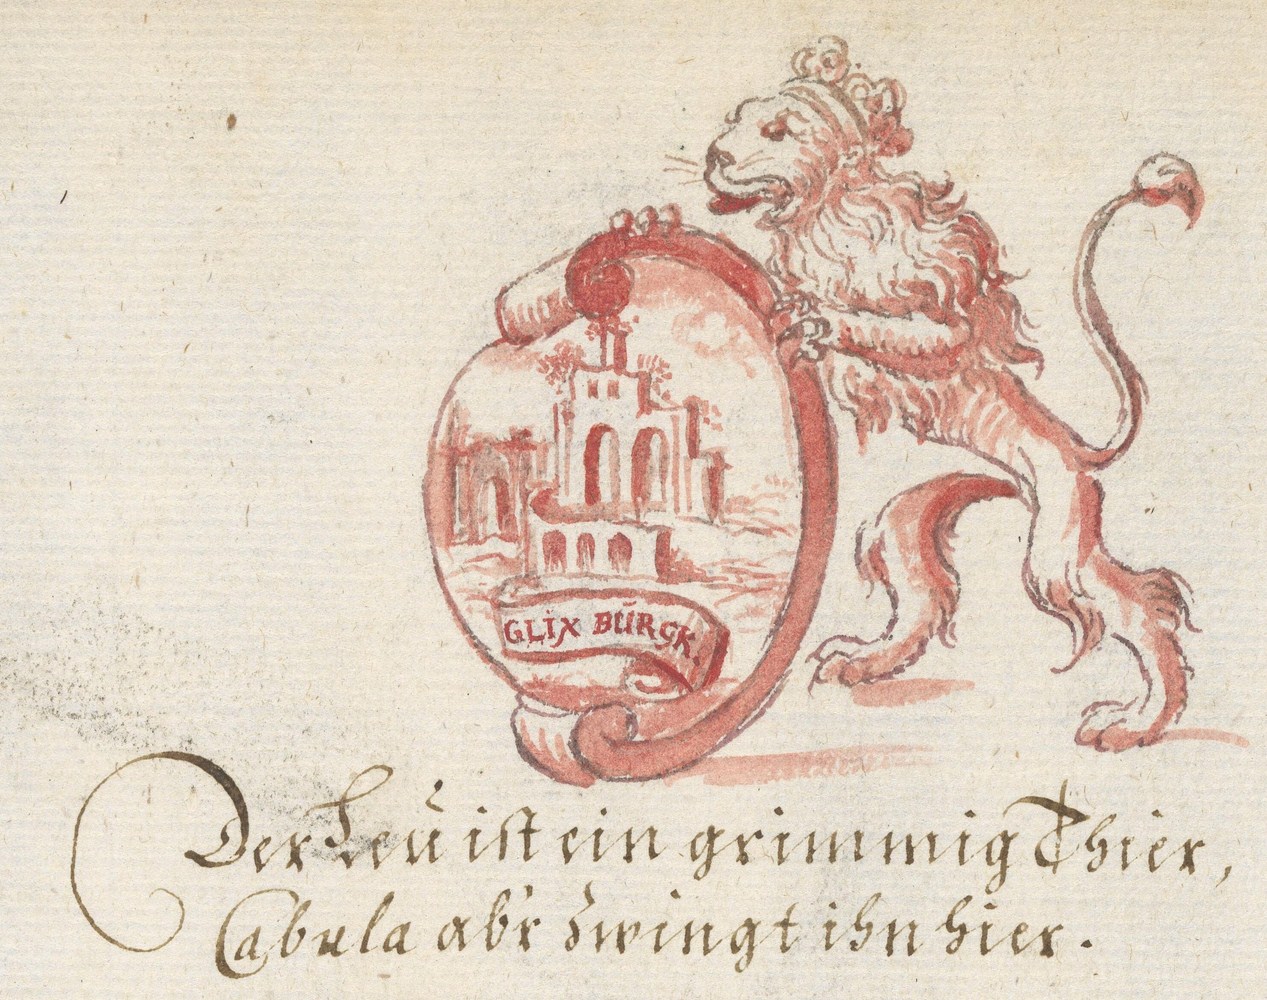 GLIX BŪRCK.
Der Leŭ ist ein grimmig Thier,
Cabula ab'r zwingt ihn hier.